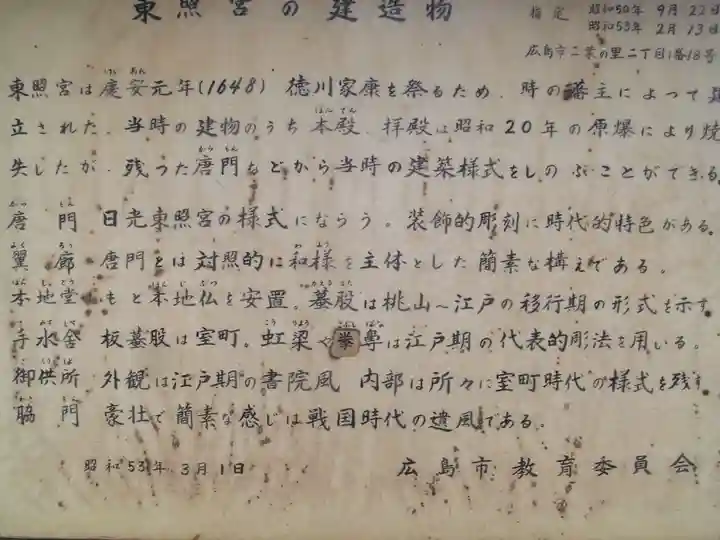 東照宮の建造物
指定 昭和50年 9月22日
昭和53年 2月13日
広島市二葉の里二丁目1番18号
東照宮は慶安元年(1648) 徳川家康を祭るため、時の藩主によって建
立された。当時の建物のうち本殿、拝殿は昭和20年の原爆により焼
失したが、残った唐門などから当時の建築様式をしのぶことができる。
唐門 日光東照宮の様式にならう。装飾的彫刻に時代的特色がある。
翼廊 唐門とは対照的に和様を主体とした簡素な構えである。
本地堂 もと本地仏を安置。蟇股は桃山～江戸の移行期の形式を示す。
手水舎 板蟇股は室町。虹梁や拳鼻は江戸期の代表的彫法を用いる。
御供所 外観は江戸期の書院風 内部は所々に室町時代の様式を残す。
脇門 豪壮で簡素な感じは戦国時代の遺風である。
昭和53年3月1日 広島市教育委員会